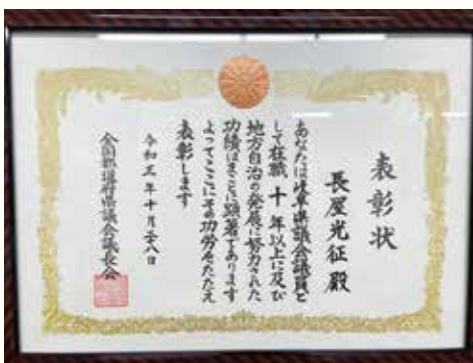 表彰状
長屋光征殿
あなたは岐阜県議会議員と
して在職十年以上に及び
地方自治の発展に努力された
功績はまことに顕著であります
よってここにその功労をたたえ
表彰します
令和三年十月二八日
全国都道府県議会議長会